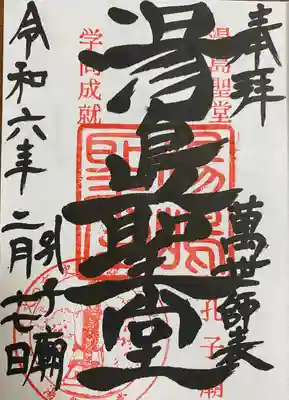 奉拝
萬世師表
湯島聖堂
孔子廟
湯島聖堂
学問成就
孔子廟
令和六年二月十七日